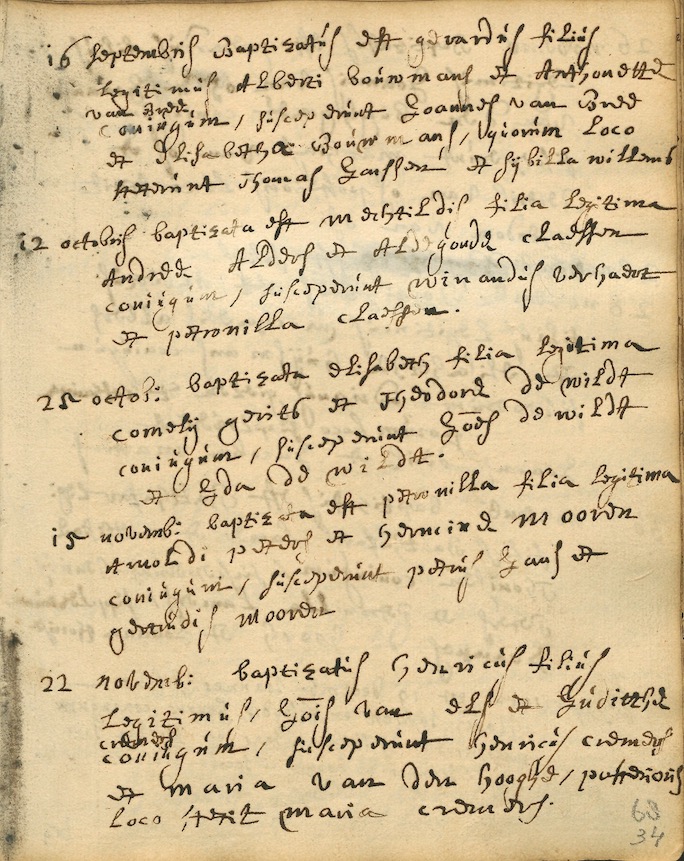 16 septembris Baptizatus est gerardus filius
legitimus Alberti bouwmans et Anthonettæ
van Bree
coniugum, susceperunt Joannes van Bree
et Elisabetha Bouwmans, quorum loco
steterunt Thomas Janssen et sybilla willems
12 octobris baptizata est mechtildis filia legitima
Andreæ Alders et Aldegondæ claessen
coniugum, susceperunt winandus verhaert
et petronilla claessen.
25 octob: baptizata elisabeth filia legitima
cornelij gerits et Theodoræ de wildt
coniugum, susceperunt Joēs de wildt
et Ida de wildt.
15 novemb: baptizata est petronilla filia legitima
Arnoldi peters et herminæ mooren
coniugum, susceperunt petrus Jans et
gertrudis mooren
22 novemb: baptizatus henricus filius
legitimus, Joīs van els et Judithæ
cremers
coniugum, susceperunt henricus cremers
et maria van den hooghe, posterioris
loco stetit maria cremers.
68
34